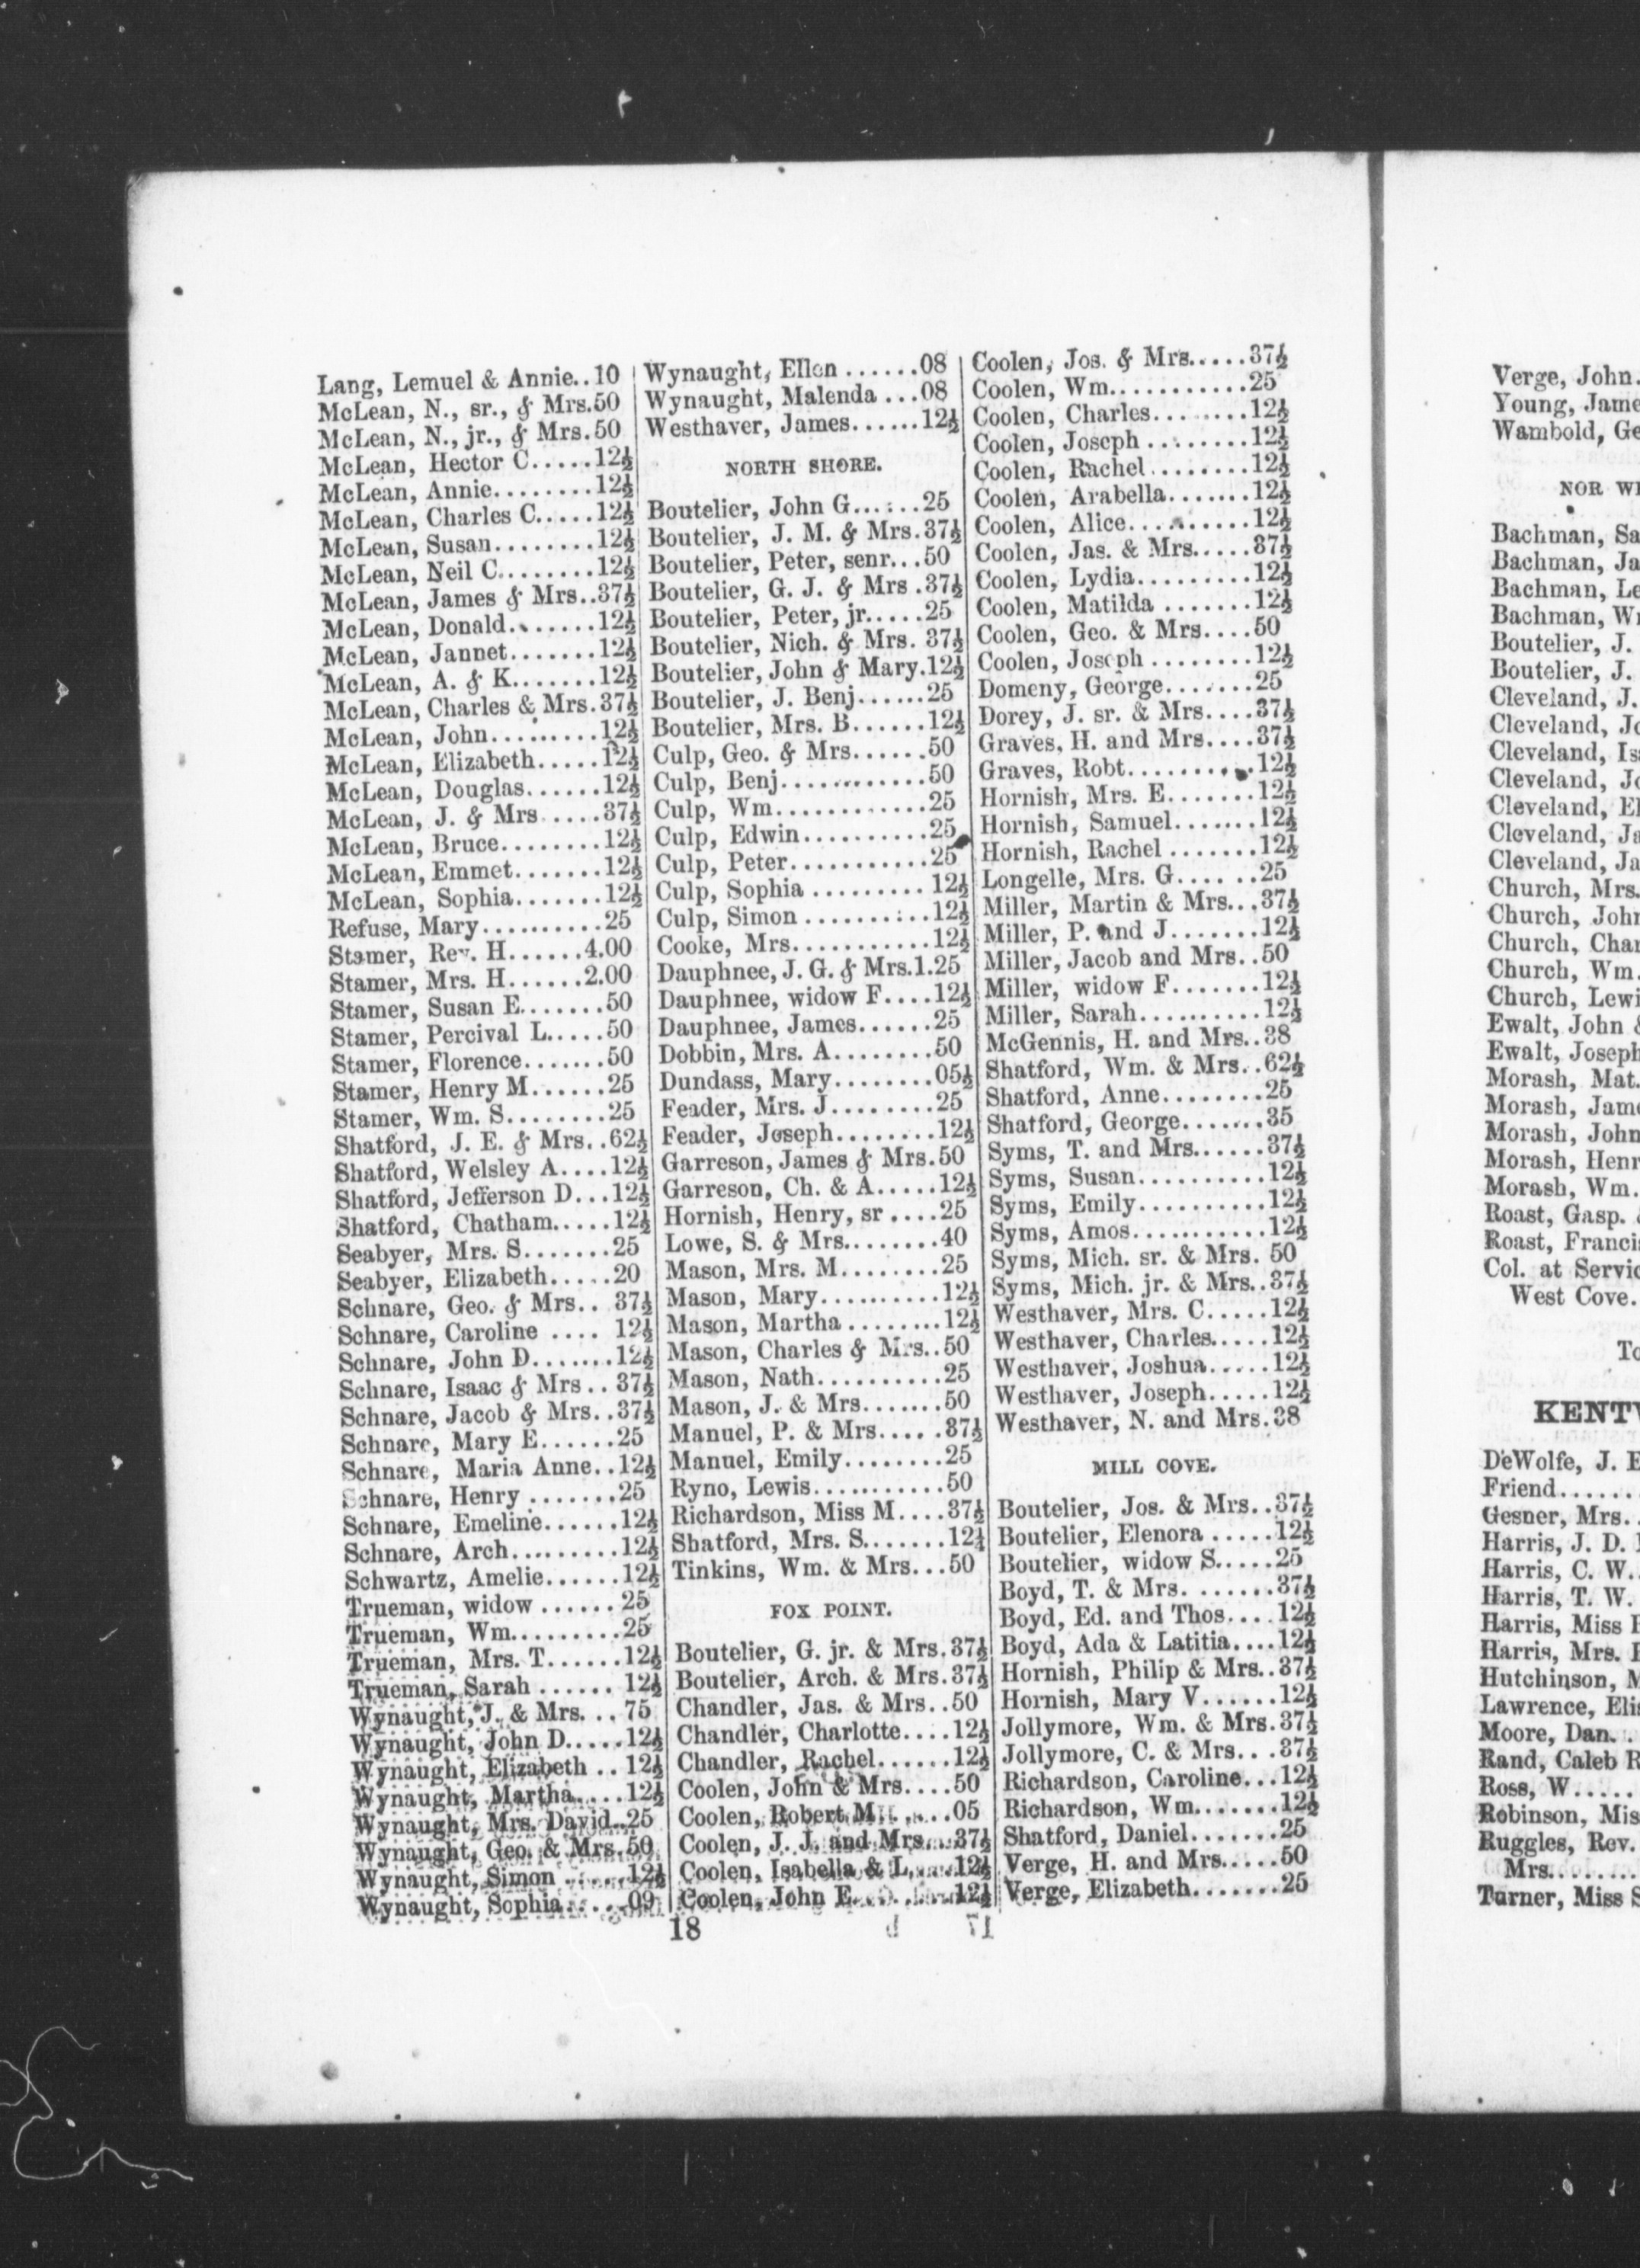 Lang, Lemuel & Annie..10
McLean, N., sr., & Mrs.50
McLean, N., jr., & Mrs.50
McLean, Hector C.....12½
McLean, Annie........12½
McLean, Charles C.....12½
McLean, Susan........12½
McLean, Neil C........12½
McLean, James & Mrs..37½
McLean, Donald........12½
McLean, Jannet.......12½
McLean, A. & K.......12½
McLean, Charles & Mrs.37½
McLean, John.........12½
McLean, Elizabeth.....12½
McLean, Douglas......12½
McLean, J. & Mrs.....37½
McLean, Bruce........12½
McLean, Emmet.......12½
McLean, Sophia.......12½
Refuse, Mary..........25
Stamer, Rev. H......4.00
Stamer, Mrs. H......2.00
Stamer, Susan E.......50
Stamer, Percival L.....50
Stamer, Florence.......50
Stamer, Henry M......25
Stamer, Wm. S........25
Shatford, J. E. & Mrs..62½
Shatford, Welsley A....12½
Shatford, Jefferson D...12½
Shatford, Chatham.....12½
Seabyer, Mrs. S.......25
Seabyer, Elizabeth.....20
Schnare, Geo. & Mrs.. 37½
Schnare, Caroline .... 12½
Schnare, John D.......12½
Schnare, Isaac & Mrs.. 37½
Schnare, Jacob & Mrs..37½
Schnare, Mary E......25
Schnare, Maria Anne..12½
Schnare, Henry .......25
Schnare, Emeline......12½
Schnare, Arch.........12½
Schwartz, Amelie......12½
Trueman, widow ......25
Trueman, Wm.........25
Trueman, Mrs. T......12½
Trueman, Sarah ...... 12½
Wynaught, J. & Mrs. ..75
Wynaught, John D.....12½
Wynaught, Elizabeth .. 12½
Wynaught, Martha.....12½
Wynaught, Mrs. David..25
Wynaught, Geo. & Mrs.50
Wynaught, Simon ......12½
Wynaught, Sophia......09
Wynaught, Ellen ......08
Wynaught, Malenda ...08
Westhaver, James......12½
NORTH SHORE.
Boutelier, John G......25
Boutelier, J. M. & Mrs.37½
Boutelier, Peter, senr...50
Boutelier, G. J. & Mrs .37½
Boutelier, Peter, jr.....25
Boutelier, Nich. & Mrs. 37½
Boutelier, John & Mary.12½
Boutelier, J. Benj......25
Boutelier, Mrs. B......12½
Culp, Geo. & Mrs......50
Culp, Benj............50
Culp, Wm.............25
Culp, Edwin...........25
Culp, Peter............25
Culp, Sophia ......... 12½
Culp, Simon ..........12½
Cooke, Mrs............12½
Dauphnee, J. G. & Mrs.1.25
Dauphnee, widow F....12½
Dauphnee, James......25
Dobbin, Mrs. A........50
Dundass, Mary........05½
Feader, Mrs. J........25
Feader, Joseph........12½
Garreson, James & Mrs.50
Garreson, Ch. & A.....12½
Hornish, Henry, sr ....25
Lowe, S. & Mrs........40
Mason, Mrs. M........25
Mason, Mary..........12½
Mason, Martha ........12½
Mason, Charles & Mrs..50
Mason, Nath..........25
Mason, J. & Mrs.......50
Manuel, P. & Mrs.....37½
Manuel, Emily........25
Ryno, Lewis...........50
Richardson, Miss M....37½
Shatford, Mrs. S.......12½
Tinkins, Wm. & Mrs...50
FOX POINT.
Boutelier, G. jr. & Mrs.37½
Boutelier, Arch. & Mrs.37½
Chandler, Jas. & Mrs..50
Chandler, Charlotte....12½
Chandler, Rachel......12½
Coolen, John & Mrs....50
Coolen, Robert M......05
Coolen, J. J. and Mrs...37½
Coolen, Isabella & L....12½
Coolen, John E........12½
Coolen, Jos. & Mrs.....37½
Coolen, Wm...........25
Coolen, Charles........12½
Coolen, Joseph ........12½
Coolen, Rachel........12½
Coolen, Arabella.......12½
Coolen, Alice..........12½
Coolen, Jas. & Mrs.....37½
Coolen, Lydia.........12½
Coolen, Matilda .......12½
Coolen, Geo. & Mrs....50
Coolen, Joseph ........12½
Domeny, George.......25
Dorey, J. sr. & Mrs....37½
Graves, H. and Mrs....37½
Graves, Robt..........12½
Hornish, Mrs. E.......12½
Hornish, Samuel.......12½
Hornish, Rachel .......12½
Longelle, Mrs. G.... ..25
Miller, Martin & Mrs...37½
Miller, P. and J.......12½
Miller, Jacob and Mrs..50
Miller, widow F.......12½
Miller, Sarah..........12½
McGennis, H. and Mrs..38
Shatford, Wm. & Mrs..62½
Shatford, Anne........25
Shatford, George.......35
Syms, T. and Mrs......37½
Syms, Susan..........12½
Syms, Emily..........12½
Syms, Amos...........12½
Syms, Mich. sr. & Mrs. 50
Syms, Mich. jr. & Mrs..37½
Westhaver, Mrs. C.....12½
Westhaver, Charles.....12½
Westhaver, Joshua.....12½
Westhaver, Joseph.....12½
Westhaver, N. and Mrs.38
MILL COVE.
Boutelier, Jos. & Mrs..37½
Boutelier, Elenora .....12½
Boutelier, widow S.....25
Boyd, T. & Mrs. ......37½
Boyd, Ed. and Thos....12½
Boyd, Ada & Latitia....12½
Hornish, Philip & Mrs..37½
Hornish, Mary V......12½
Jollymore, Wm. & Mrs.37½
Jollymore, C. & Mrs...37½
Richardson, Caroline...12½
Richardson, Wm.......12½
Shatford, Daniel.......25
Verge, H. and Mrs.....50
Verge, Elizabeth.......25
18
Verge, John.
Young, Jame
Wambold, Ge
NOR W
Bachman, Sa
Bachman, Ja
Bachman, Le
Bachman, W
Boutelier, J.
Boutelier, J.
Cleveland, J.
Cleveland, Jo
Cleveland, Is
Cleveland, Jo
Cleveland, El
Cleveland, Ja
Cleveland, Ja
Church, Mrs.
Church, John
Church, Char
Church, Wm.
Church, Lewi
Ewalt, John &
Ewalt, Joseph
Morash, Mat.
Morash, Jame
Morash, John
Morash, Henr
Morash, Wm.
Roast, Gasp. &
Roast, Franci
Col. at Servic
West Cove.
To
KENTV
DeWolfe, J. E
Friend......
Gesner, Mrs..
Harris, J. D.
Harris, C. W.
Harris, T. W.
Harris, Miss
Harris, Mrs.
Hutchinson, M
Lawrence, Elis
Moore, Dan. .
Rand, Caleb R
Ross, W.....
Robinson, Mis
Ruggles, Rev.
Mrs........
Turner, Miss S